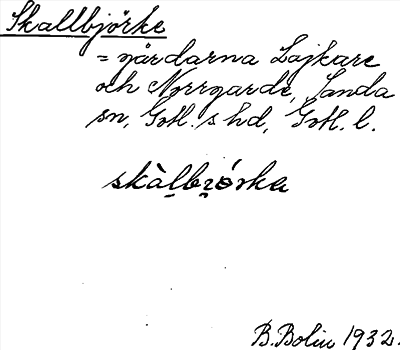 Skallbjörke
= gårdarna Lajkare
och Norrgarde, Sanda
sn, Gotl. s hd, Gotl. l.
skàlbʒórka
B. Bolin 1932.